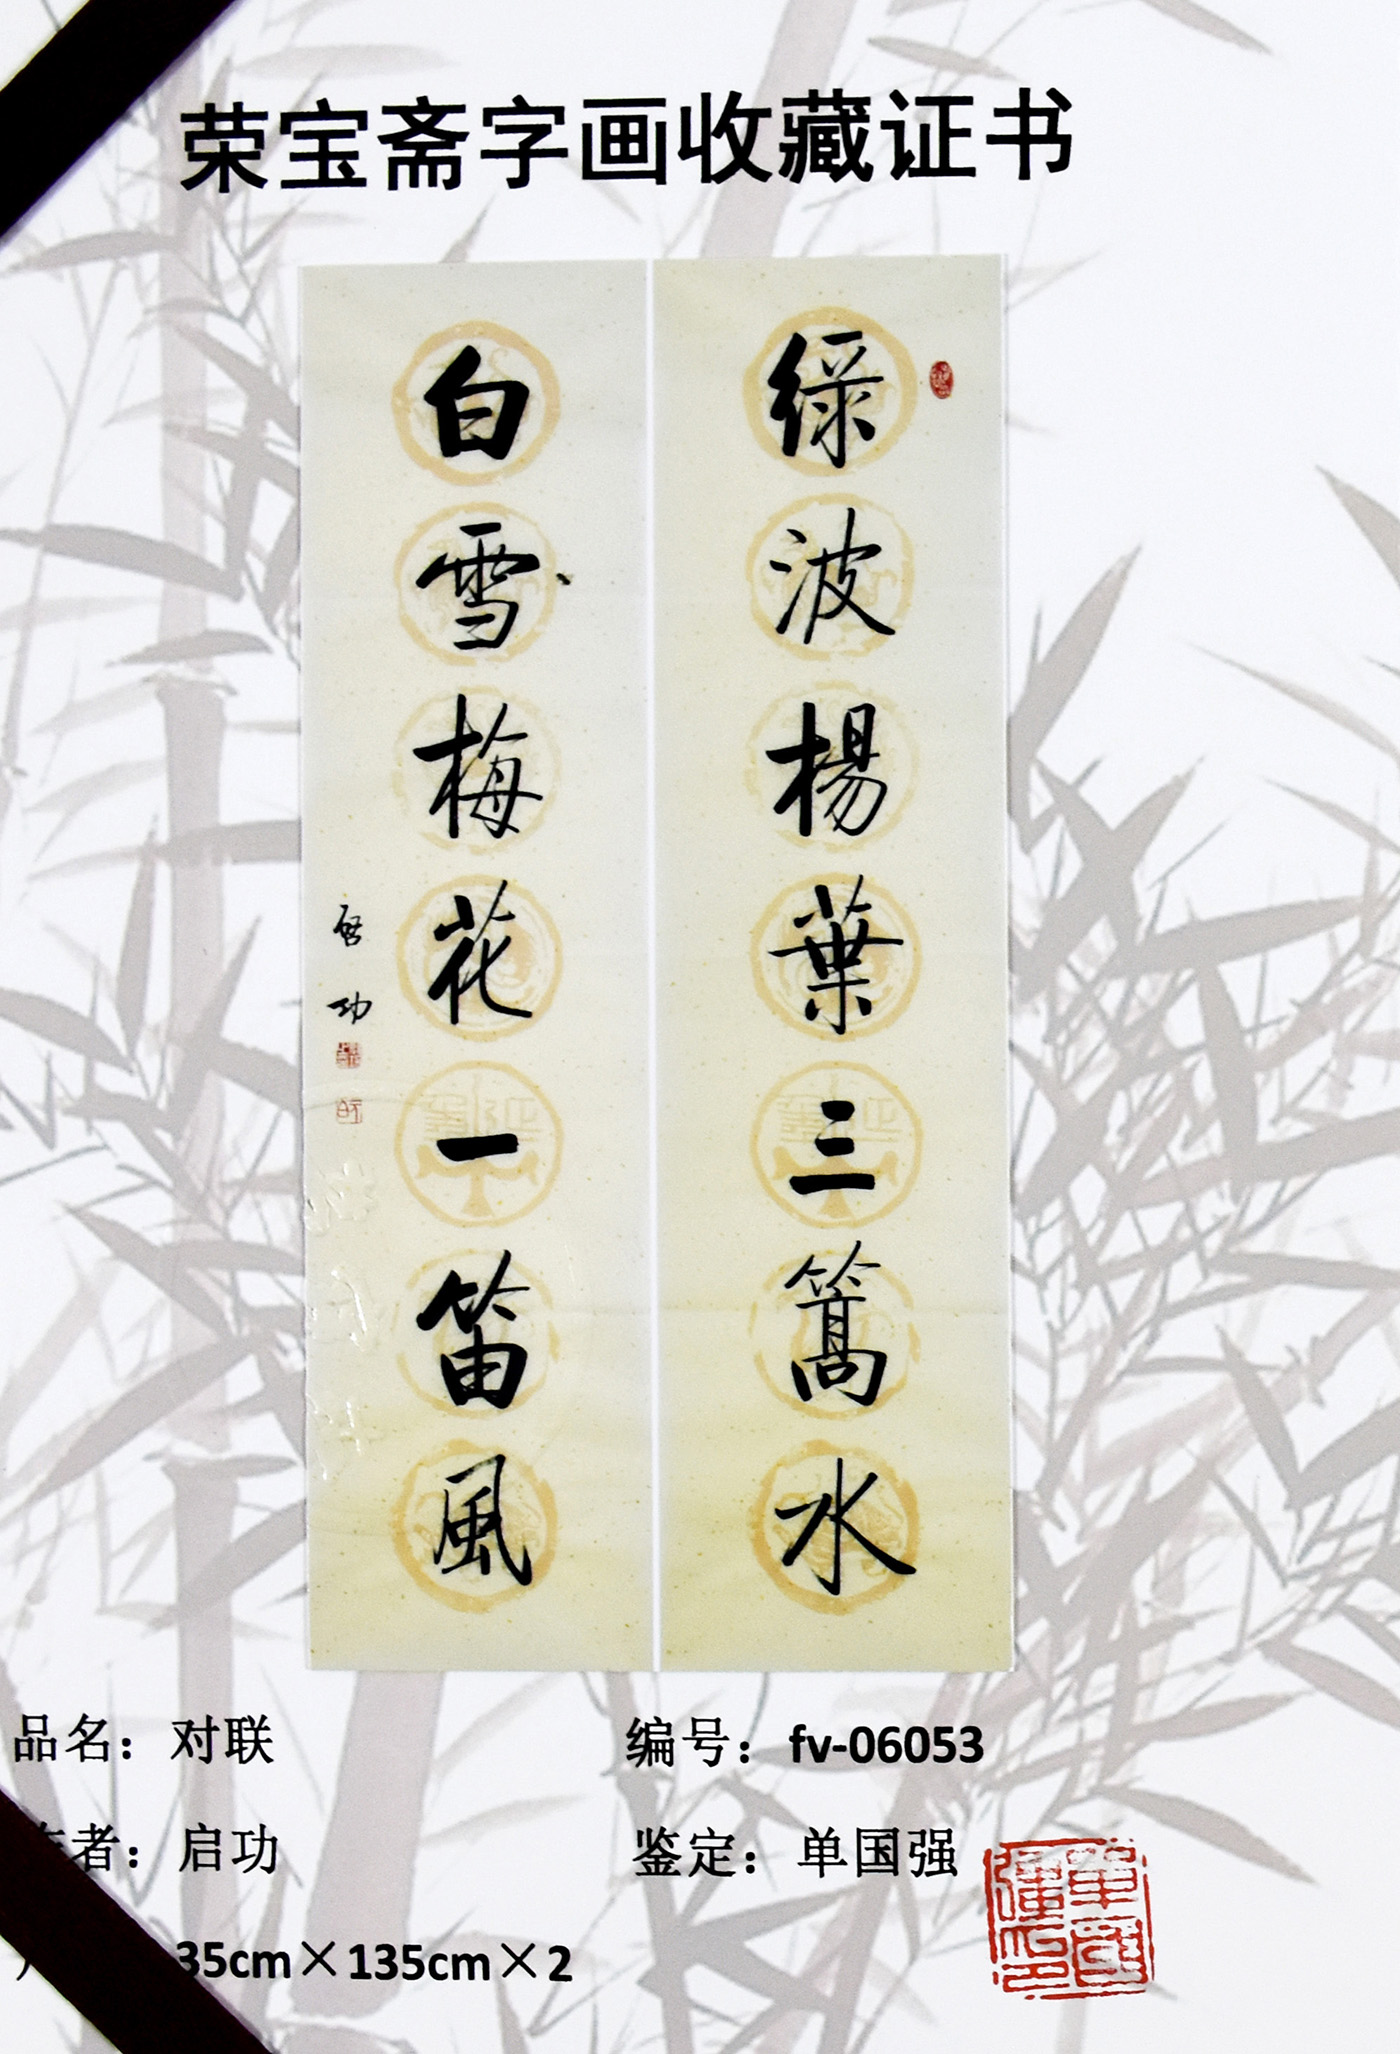 荣宝斋字画收藏证书
綠波楊葉三篙水
白雪梅花一笛風
啓功
品名：对联
编号：fv-06053
作者：启功
鉴定：单国强
35cm×135cm×2